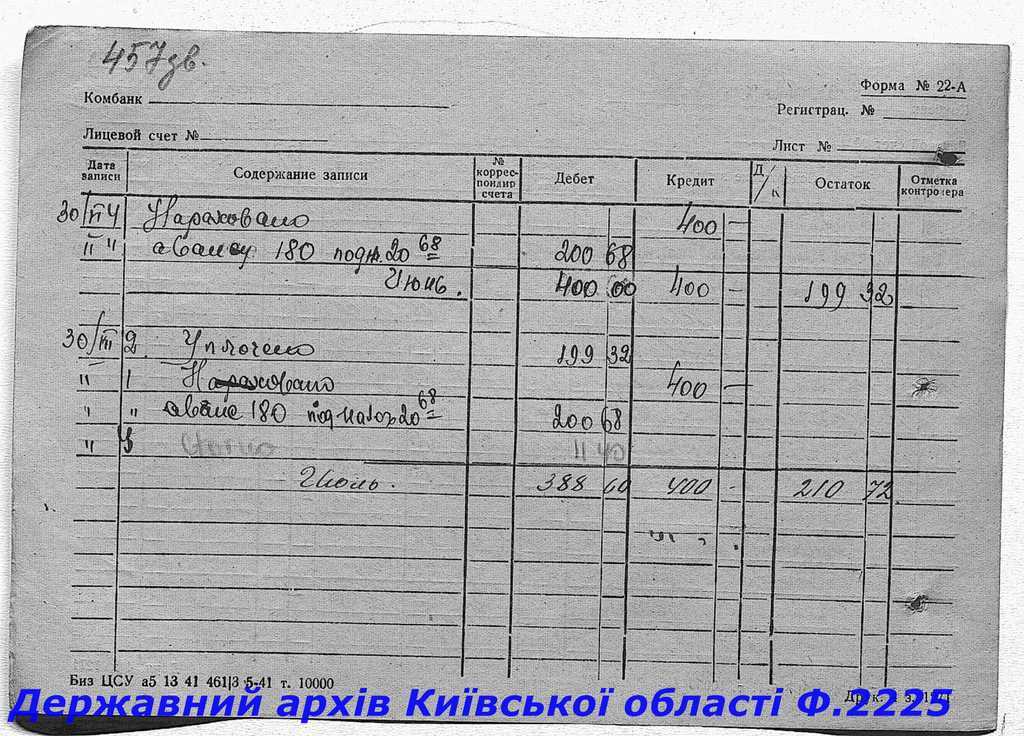 457дв.
Форма № 22-А
Комбанк
Регистрац. №
Лицевой счет №
Лист №
Дата записи Содержание записи № коррес-пондир счета Дебет Кредит Д/К Остаток Отметка контролера
30/VI 4 Нараховано 400 —
" " авансу 180 под. 20 68 200 68
Июнь. 400 00 400 — 199 32
30/VII 2 Уплочено 199 32
" 1 Нараховано 400 —
" " аванс 180 под 20 68 200 68
" 11 40
Июль. 388 60 400 - 210 72
Биз ЦСУ а5 13 41 461|3 5-41 т. 10000
Державний архів Київської області Ф.2225